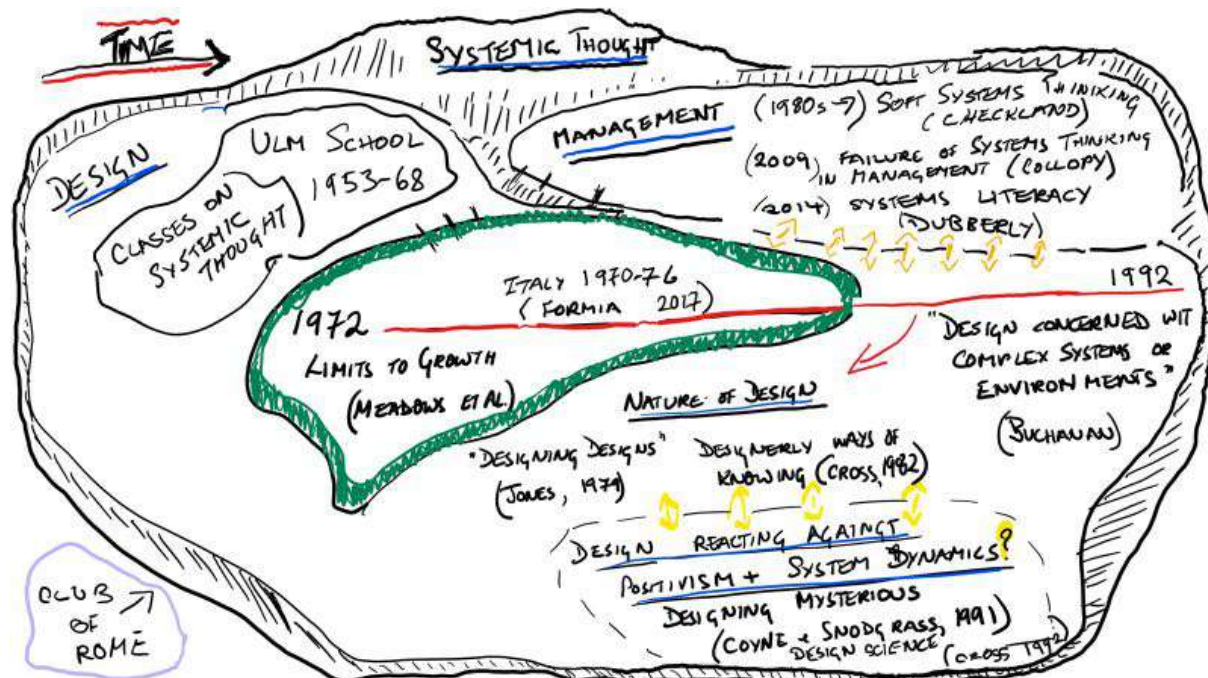 TIME
SYSTEMIC THOUGHT
DESIGN
ULM SCHOOL
1953-68
CLASSES ON
SYSTEMIC
THOUGHT
MANAGEMENT
(1980s→) SOFT SYSTEMS THINKING
(CHECKLAND)
(2009) FAILURE OF SYSTEMS THINKING
IN MANAGEMENT (COLLOPY)
(2014) SYSTEMS LITERACY
(DUBBERLY)
ITALY 1970-76
(FORMIA 2017)
1972
LIMITS TO GROWTH
(MEADOWS ET AL.)
1992
"DESIGN CONCERNED WIT
COMPLEX SYSTEMS OR
ENVIRONMENTS"
(BUCHANAN)
NATURE OF DESIGN
"DESIGNING DESIGNS"
(JONES, 1979)
DESIGNERLY WAYS OF
KNOWING (CROSS, 1982)
DESIGN REACTING AGAINGT
POSITIVISM + SYSTEM DYNAMICS?
DESIGNING MYSTERIOUS
(COYNE + SNODGRASS, 1991)
DESIGN SCIENCE (CROSS 1992)
CLUB
OF
ROME